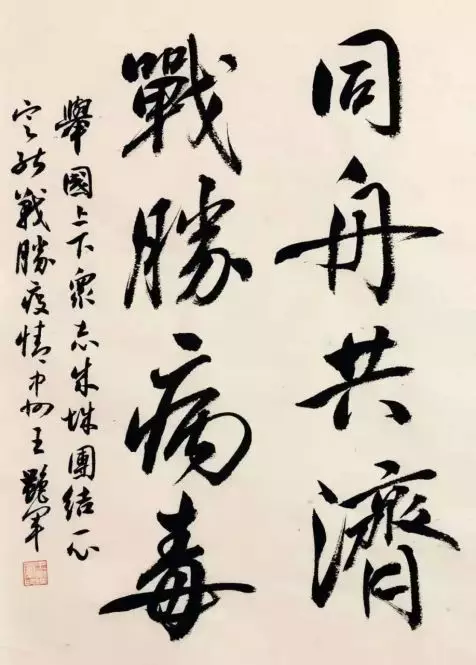 同舟共濟
戰勝病毒
舉國上下衆志成城團結一心
定能戰勝疫情中州王艷軍